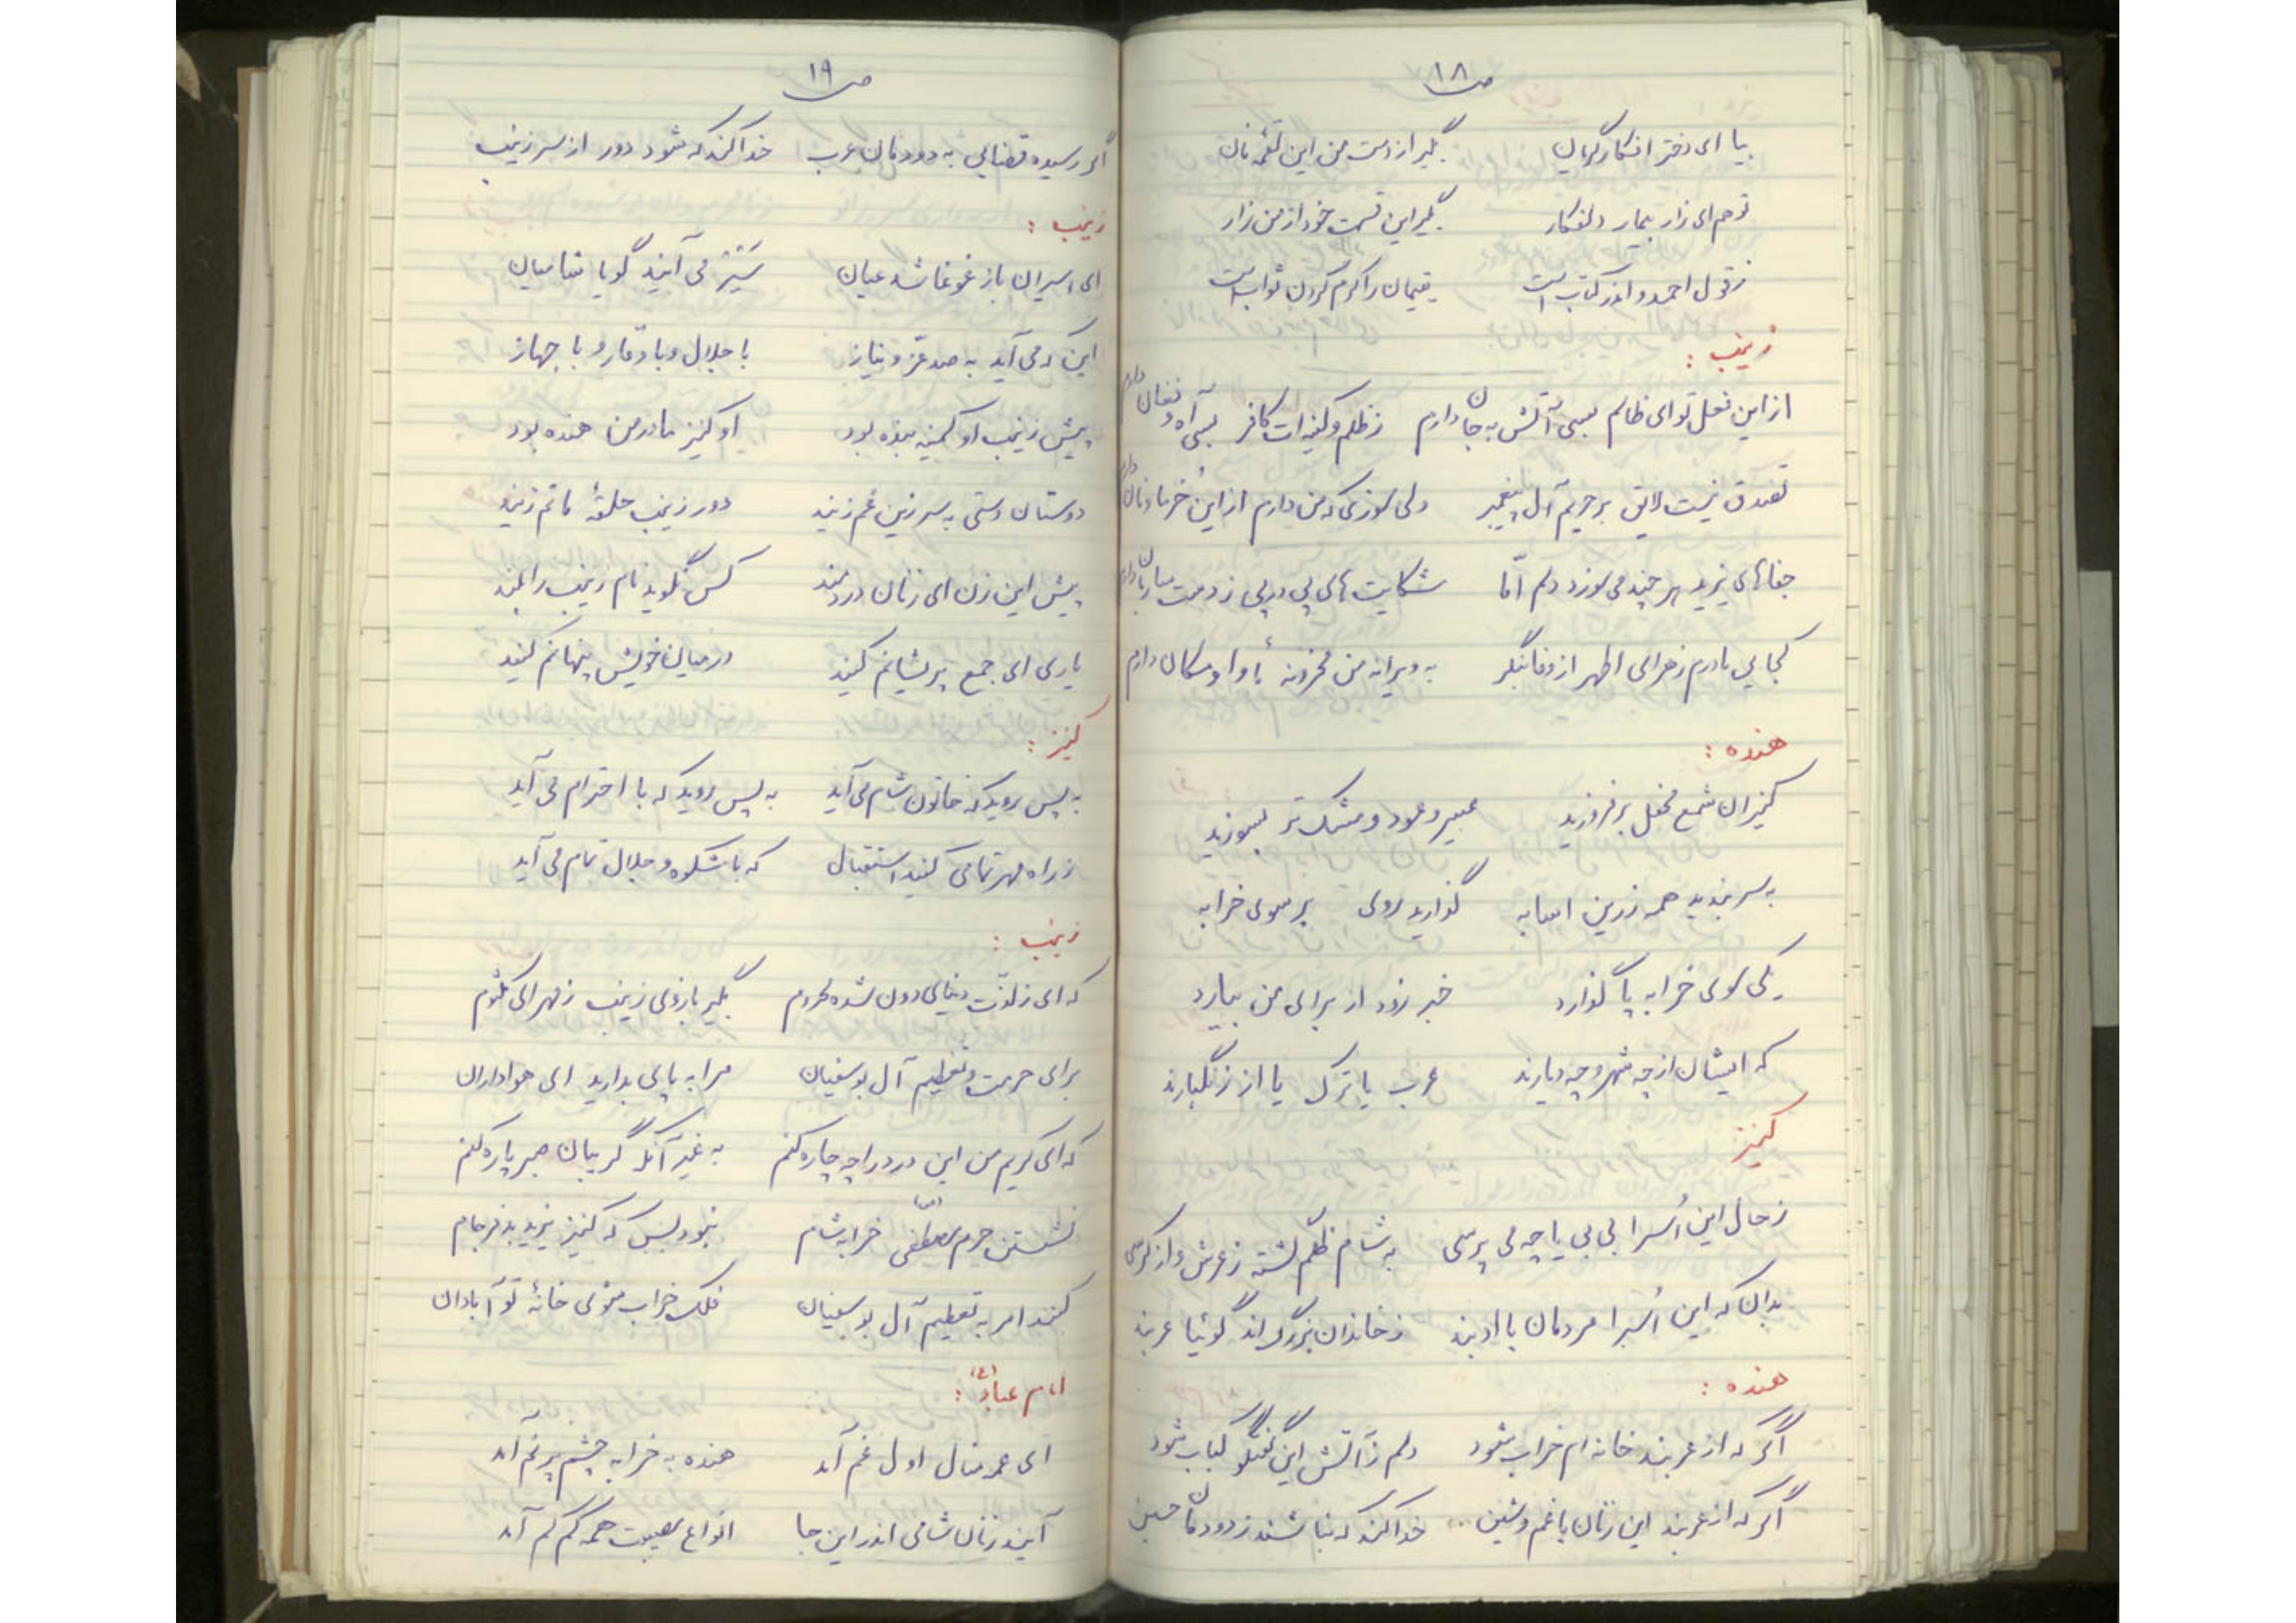 ص ۱۸
بیا ای دختر افکار گریان بگیر از دست من این لقمه نان
تو هم ای زار بیمار دلفکار بگیر این قسمت خود از من زار
ز قول احمد و اندر کتاب است یتیمان را کرم کردن ثواب است
زینب :
از این فعل تو ای ظالم بسی آتش به جان دارم ز ظلم و کینه ات کافر بسی آه و فغان دارم
تصدق نیست لایق بر حریم آل پیغمبر ولی سوزی که من دارم از این خرما و نان دارم
جفاهای یزید هر چند می سوزد دلم امّا شکایت های پی در پی ز دست ساربان دارم
کجایی مادرم زهرای اطهر از وفا بنگر به ویرانه من محزونه مأوا و مکان دارم
هنده :
کنیزان شمع محفل بر فروزید عبیر و عود و مشک تر بسوزید
به سر بندید همه زرین اسابه گذارید روی بر سوی خرابه
یکی سوی خرابه پا گذارد خبر زود از برای من بیارد
که ایشان از چه شهر و چه دیارند عرب یا ترک یا از زنگبارند
کنیز
ز حال این اُسرا بی بی یا چه می پرسی به شام ظلم گشته ز عرش و از کرسی
بدان که این اُسرا مردمان با ادبند ز خاندان بزرگ اند گوئیا عربند
هنده :
اگر که از عربند خانه ام خراب شود دلم ز آتش این گفتگو کباب شود
اگر که از عربند این زنان با غم و شین خدا کند که نباشند ز دودمان حسین
ص ۱۹
اگر رسیده قضایی به دودمان عرب خدا کند که شود دور از سر زینب
زینب :
ای اسیران باز غوغا شد عیان سَیَرَ می آیند گویا شامیان
این که می آید به صد عزّ و نیاز با جلال و با وقار و با جهاز
پیش زینب او کمینه بنده بود او کنیز مادر من هنده بود
دوستان دستی به سر زین غم زنید دور زینب حلقهٔ ماتم زنید
پیش این زن ای زنان دردمند کس نگوید نام زینب را بلند
یاری ای جمع پریشانم کنید در میان خویش پنهانم کنید
کنیز :
به پس روید که خاتون شام می آید به پس روید که با احترام می آید
ز راه مهر تمامی کنید استقبال که با شکوه و جلال تمام می آید
زینب :
که ای ز لذّت دنیای دون شده محروم بگیر بازوی زینب ز مهر ای کلثوم
برای حرمت و تعظیم آل بوسفیان مرا به پای بدارید ای هواداران
که ای کریم من این درد را چه چاره کنم به غیر آنکه گریبان صبر پاره کنم
نشستن حرم مصطفی (ص) خرابه شام نبود بس که کنیز یزید بد فرجام
کنند امر به تعظیم آل بوسفیان فلک خراب شوی خانهٔ تو آبادان
امام عباد (ع) :
ای عمه منال اول غم آمد هنده به خرابه چشم پر نم آمد
آیند زنان شامی اندر این جا انواع مصیبت همه کم کم آمد